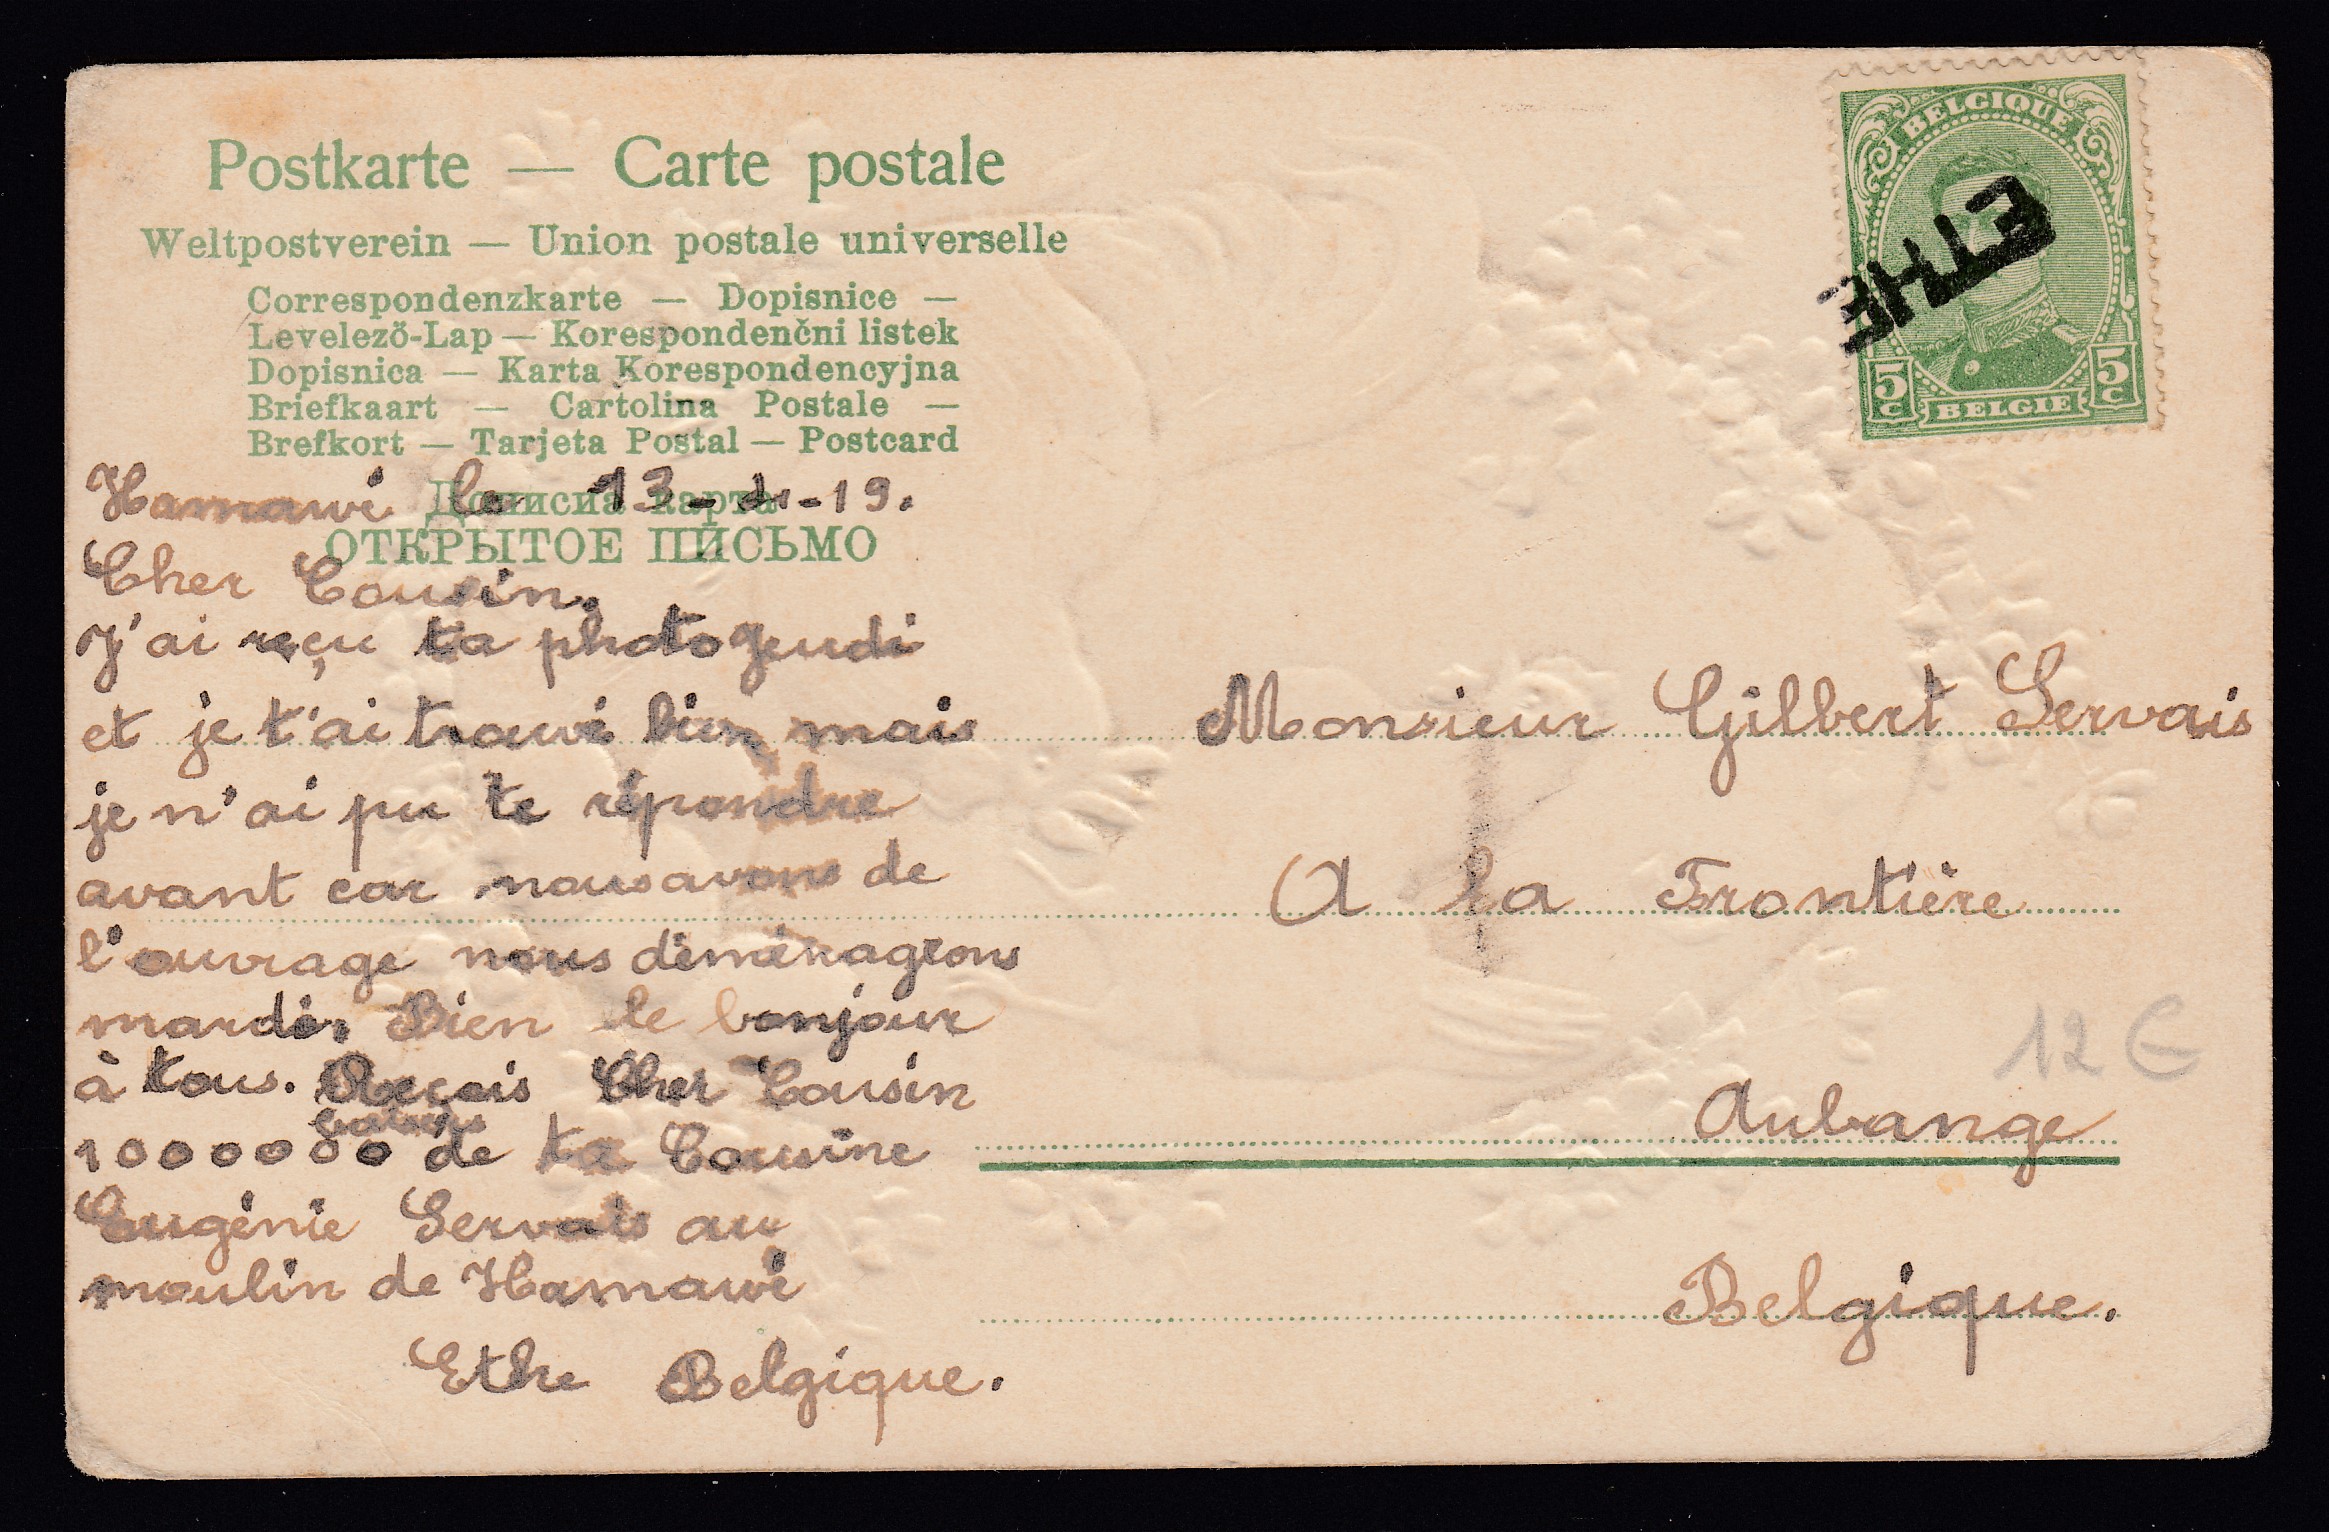 Postkarte — Carte postale
Weltpostverein — Union postale universelle
Correspondenzkarte — Dopisnice —
Levelező-Lap — Korespondenčni listek
Dopisnica — Karta Korespondencyjna
Briefkaart — Cartolina Postale —
Brefkort — Tarjeta Postal — Postcard
Дописна карта
ОТКРЫТОЕ ПИСЬМО
BELGIQUE
ETHE
5c 5c
BELGIE
Hamawé le 13- -19.
Cher Cousin,
J'ai reçu ta photo Jeudi
et je t'ai trouvé bien mais
je n'ai pu te répondre
avant car nous avons de
l'ouvrage nous déménagrons
mardi. Bien le bonjour
à tous. Reçois Cher Cousin
baisers
1000000 de ta Cousine
Eugénie Servais au
moulin de Hamawé
Ethe Belgique.
Monsieur Gilbert Servais
A la Frontière
Aubange
Belgique.
12 €